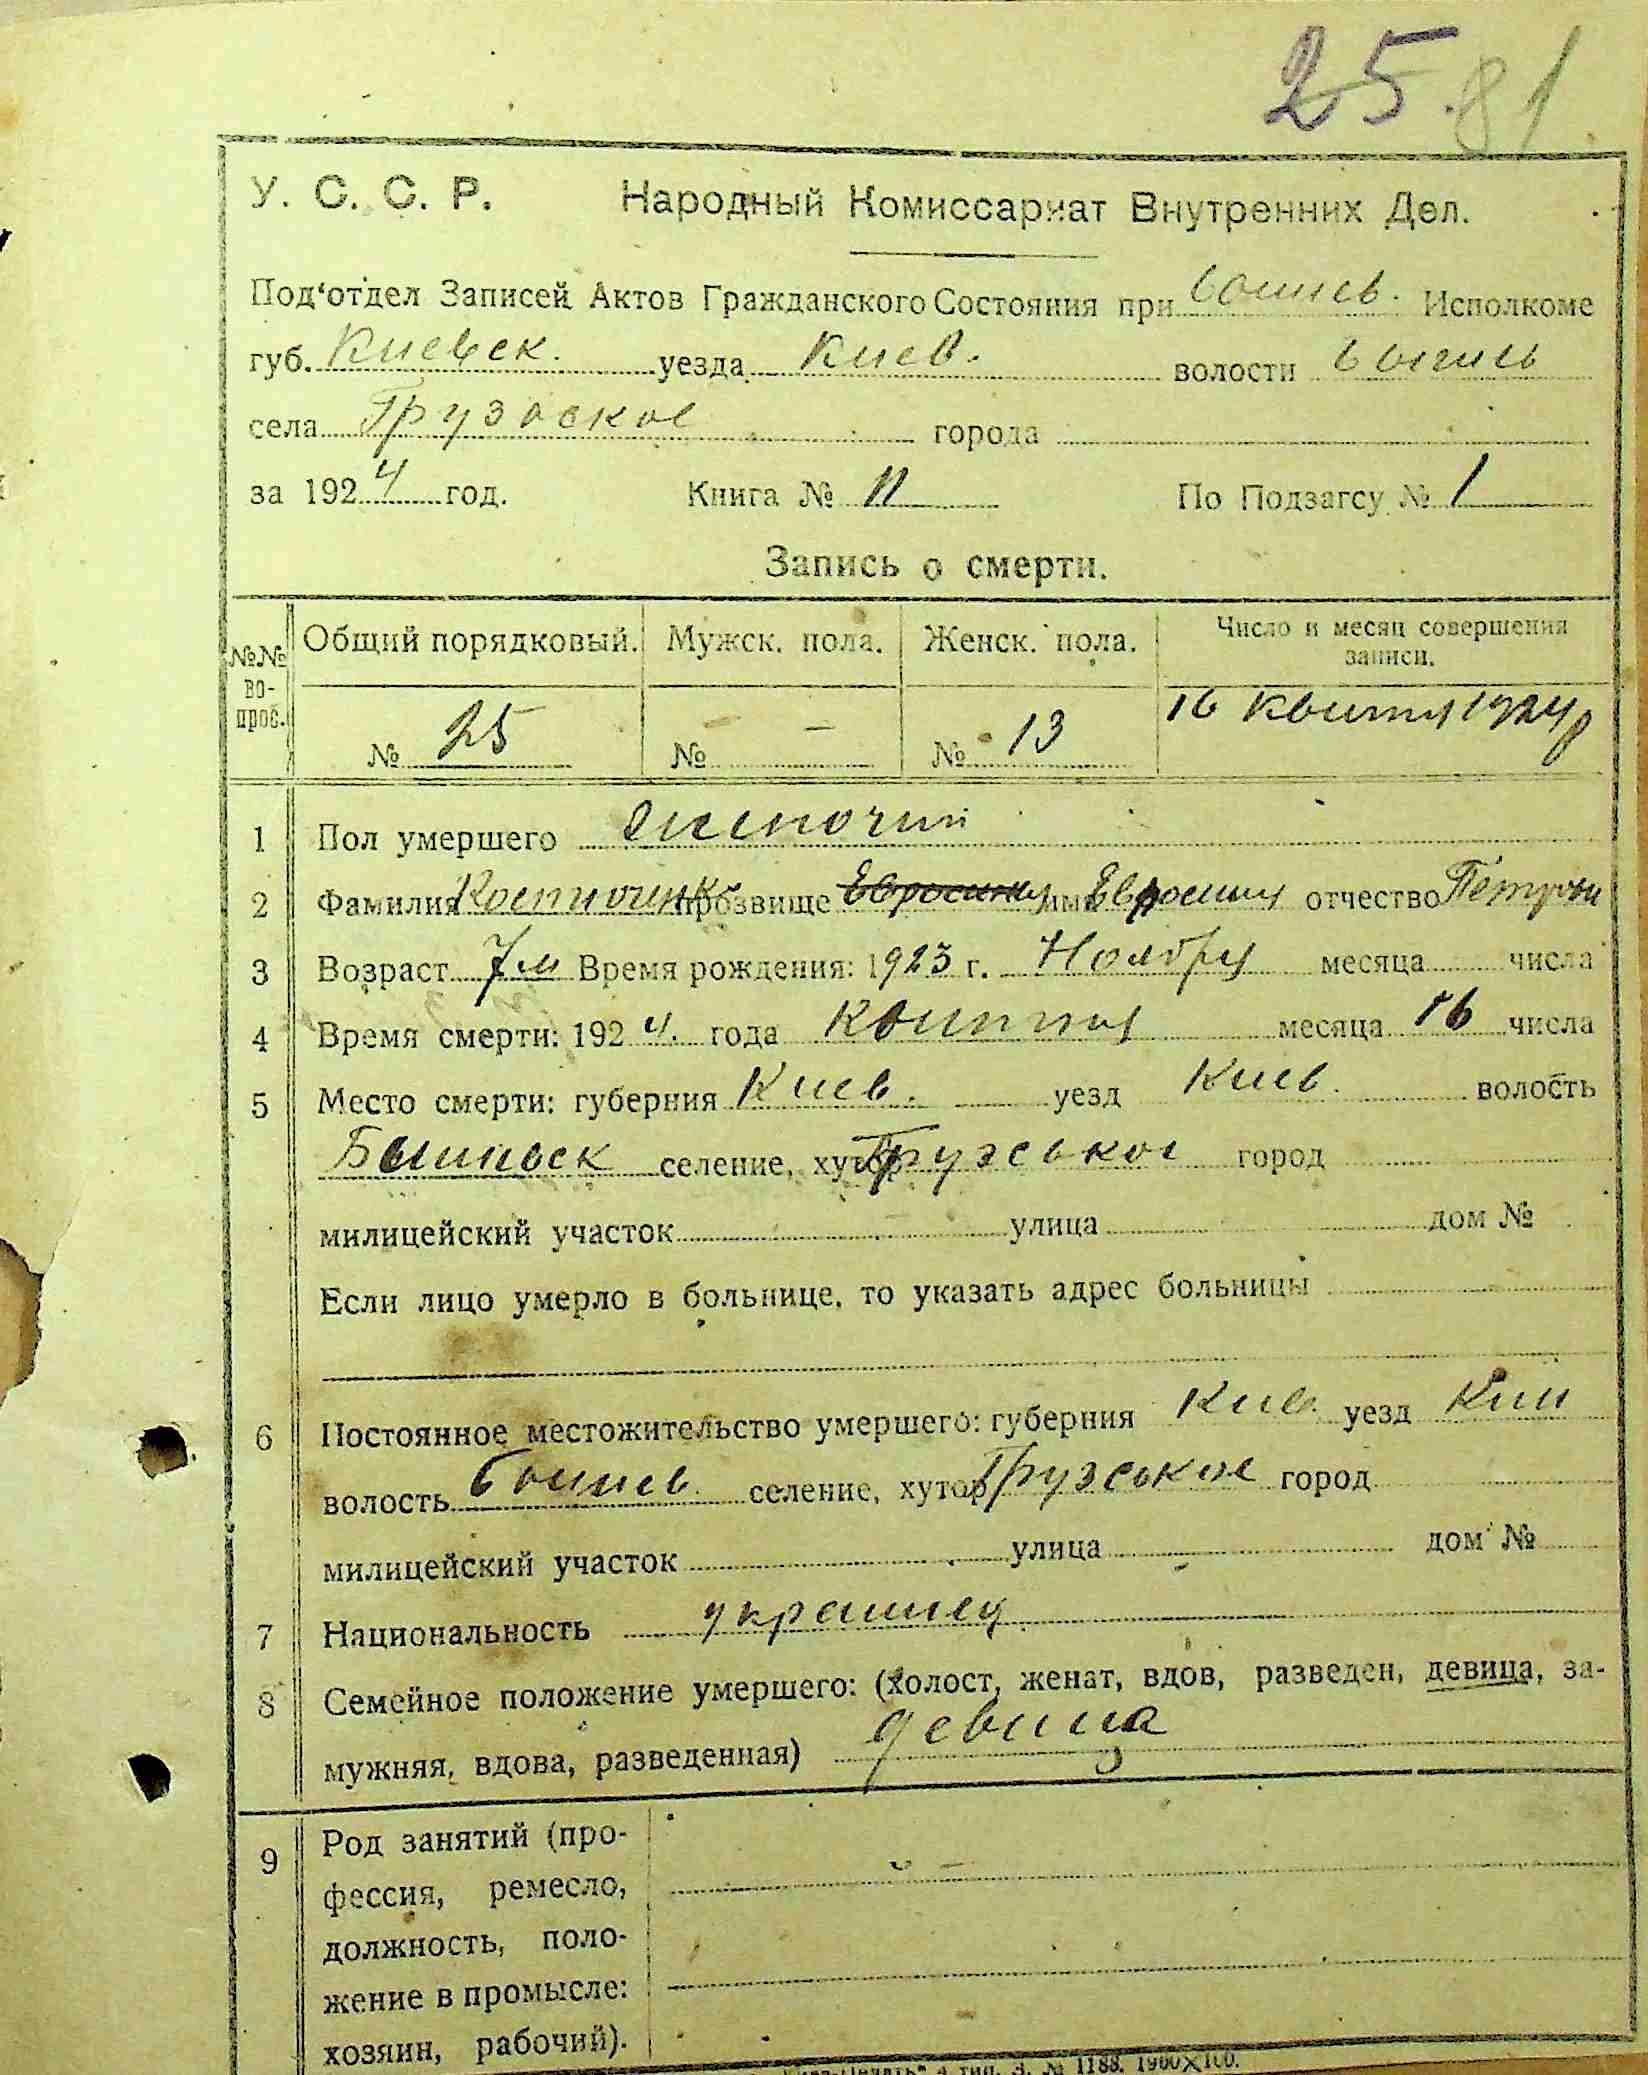 25. 81
У. С. С. Р. Народный Комиссариат Внутренних Дел.
Под'отдел Записей Актов Гражданского Состояния при Исполкоме
губ. Киевск. уезда Киев. волости
села Грузское города
за 1924 год. Книга № II По Подзагсу № 1
Запись о смерти.
№№ во- прос. Общий порядковый. Мужск. пола. Женск. пола. Число и месяц совершения записи.
№ 25 № — № 13 16 Квитня 1924 р
1 Пол умершего жиночий
2 Фамилия Костюченко прозвище имя Евросиния отчество Петрови
3 Возраст 7 м Время рождения: 1923 г. Ноября месяца числа
4 Время смерти: 1924. года Квитня месяца 16 числа
5 Место смерти: губерния Киев. уезд Киев. волость
Бышивск селение, хутор Грузськое город
милицейский участок улица дом №
Если лицо умерло в больнице, то указать адрес больницы
6 Постоянное местожительство умершего: губерния Киев. уезд Кии
волость Бышев. селение, хутор Грузськое город
милицейский участок улица дом №
7 Национальность украинец
8 Семейное положение умершего: (холост, женат, вдов, разведен, девица, за-
мужняя, вдова, разведенная) девица
9 Род занятий (про-
фессия, ремесло,
должность, поло-
жение в промысле:
хозяин, рабочий).
№ 1188. 1900×100.